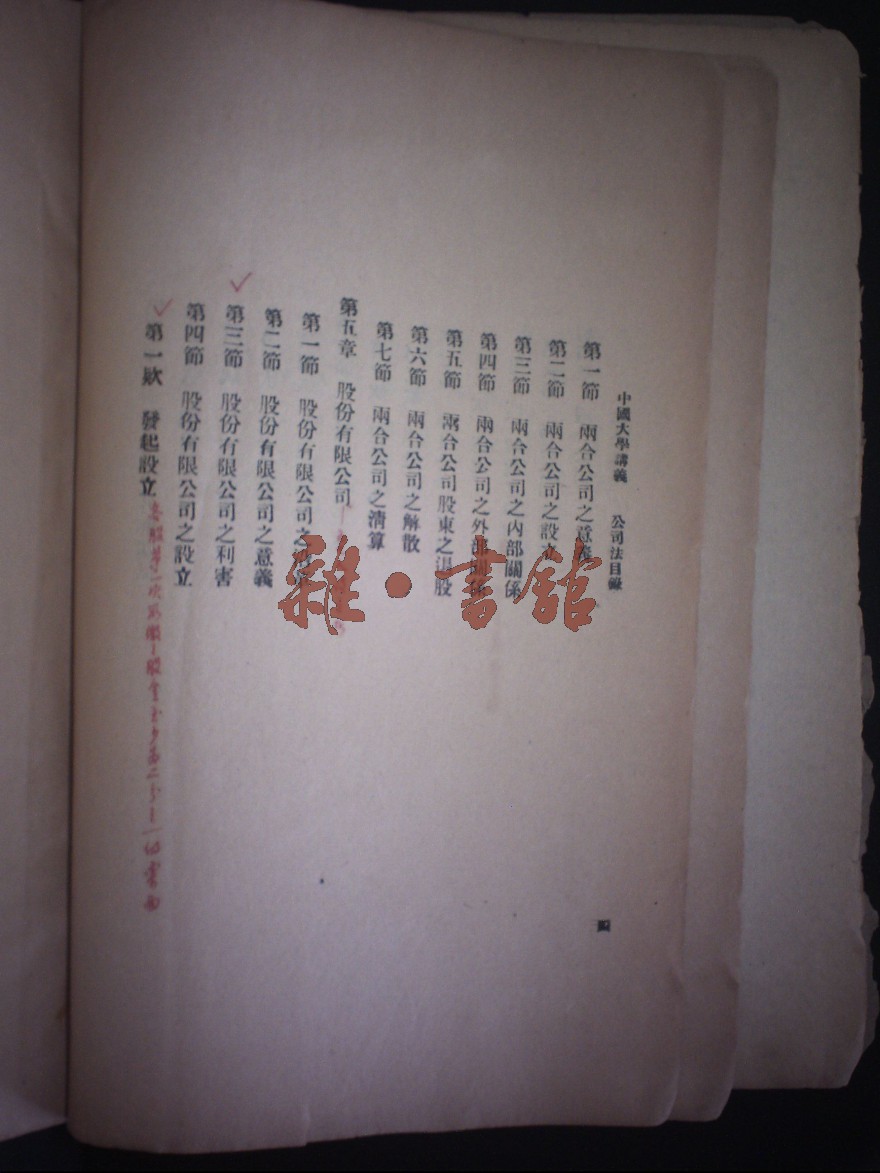 中國大學講義　公司法目錄
四
第一節　兩合公司之意義
第二節　兩合公司之設立
第三節　兩合公司之內部關係
第四節　兩合公司之外部關係
第五節　兩合公司股東之退股
第六節　兩合公司之解散
第七節　兩合公司之清算
第五章　股份有限公司
第一節　股份有限公司之
第二節　股份有限公司之意義
第三節　股份有限公司之利害
第四節　股份有限公司之設立
第一欵　發起設立
雜·書館